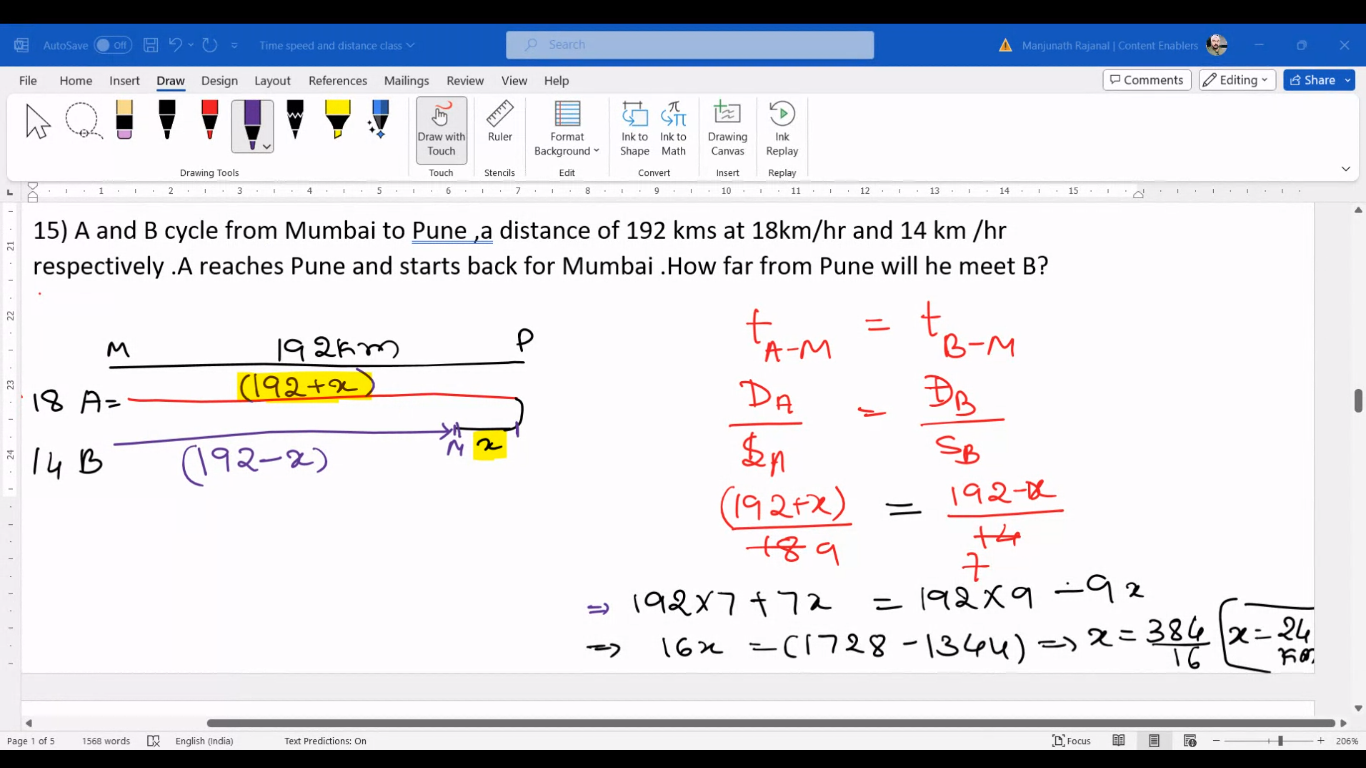 AutoSave Off Time speed and distance class Search Manjunath Rajanal | Content Enablers
File Home Insert Draw Design Layout References Mailings Review View Help Comments Editing Share
Draw with Touch Ruler Format Background Ink to Shape Ink to Math Drawing Canvas Ink Replay
Drawing Tools Touch Stencils Edit Convert Insert Replay
1 2 3 4 5 6 7 8 9 10 11 12 13 14 15
15) A and B cycle from Mumbai to Pune ,a distance of 192 kms at 18km/hr and 14 km /hr
respectively .A reaches Pune and starts back for Mumbai .How far from Pune will he meet B?
M 192km P
(192+x)
18 A=
14 B (192-x) M x
t A-M = t B-M
D_A / S_A = D_B / S_B
(192+x) / 18 9 = 192-x / 14 7
⇒ 192×7 + 7x = 192×9 - 9x
⇒ 16x = (1728 - 1344) ⇒ x = 384/16 x = 24 km
21
22
23
24
25
Page 1 of 5 1568 words English (India) Text Predictions: On Focus 206%